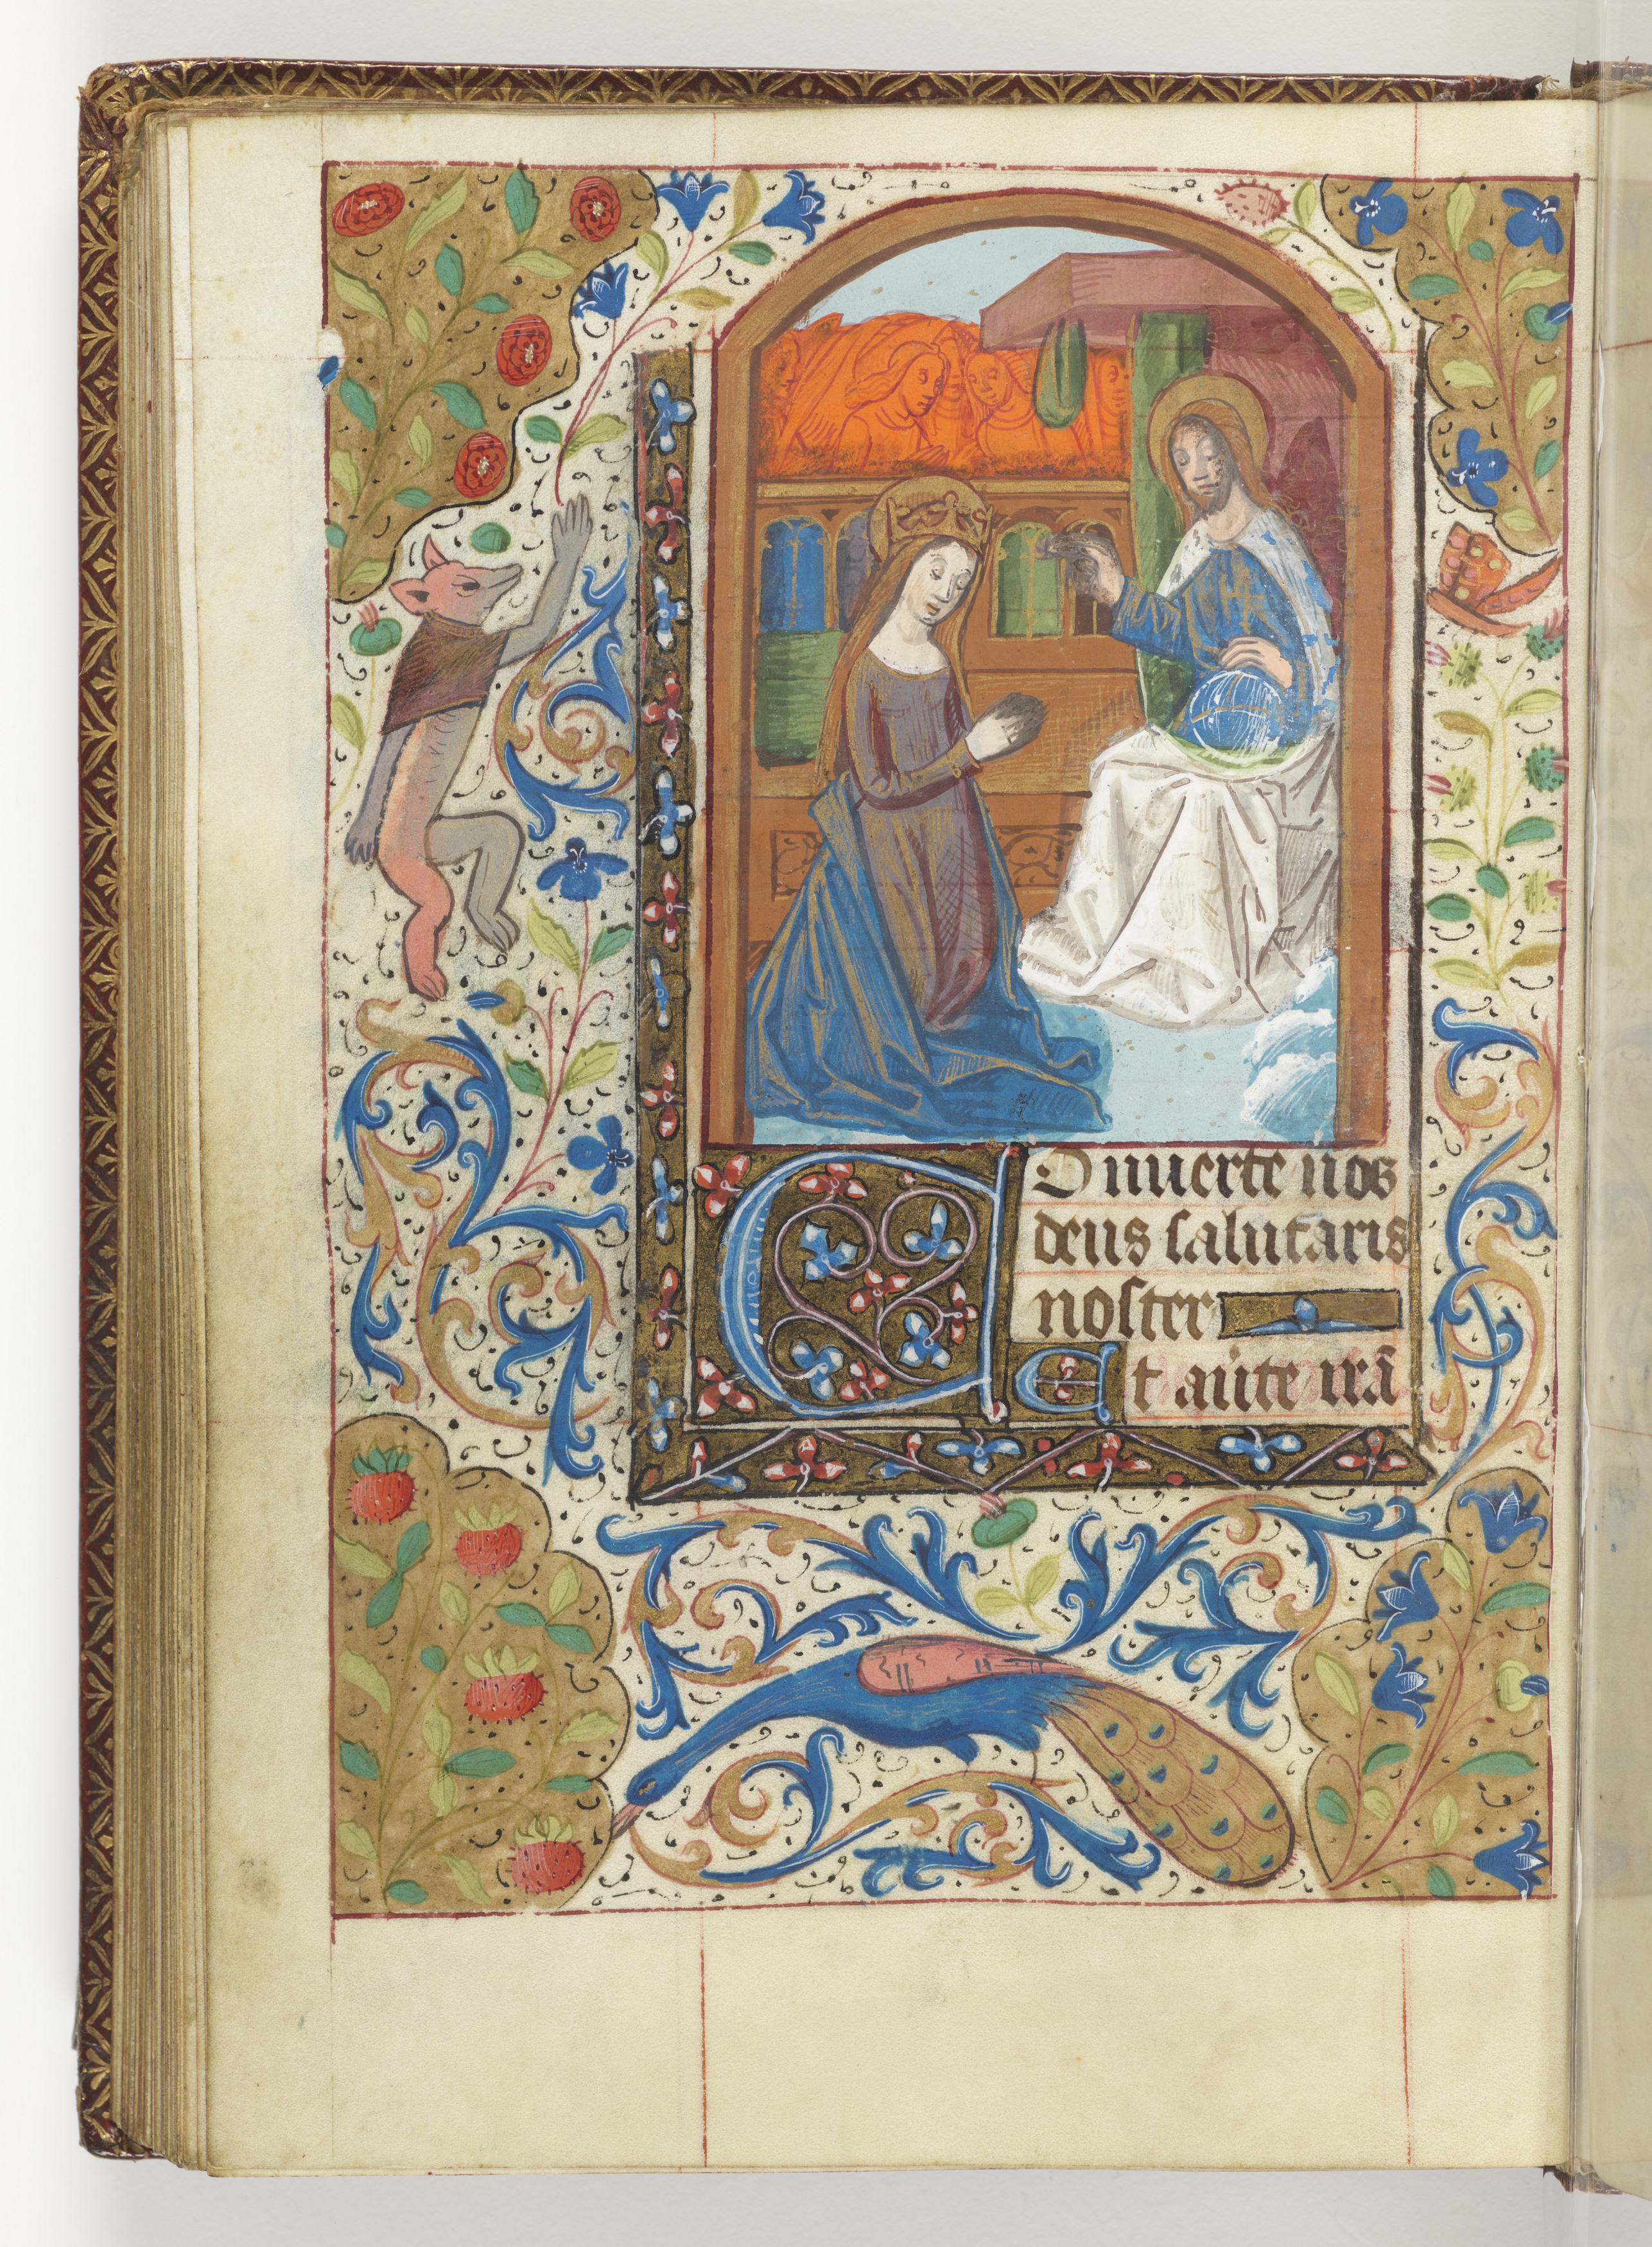 Conuerte nos
deus salutaris
noster
Et auerte irā